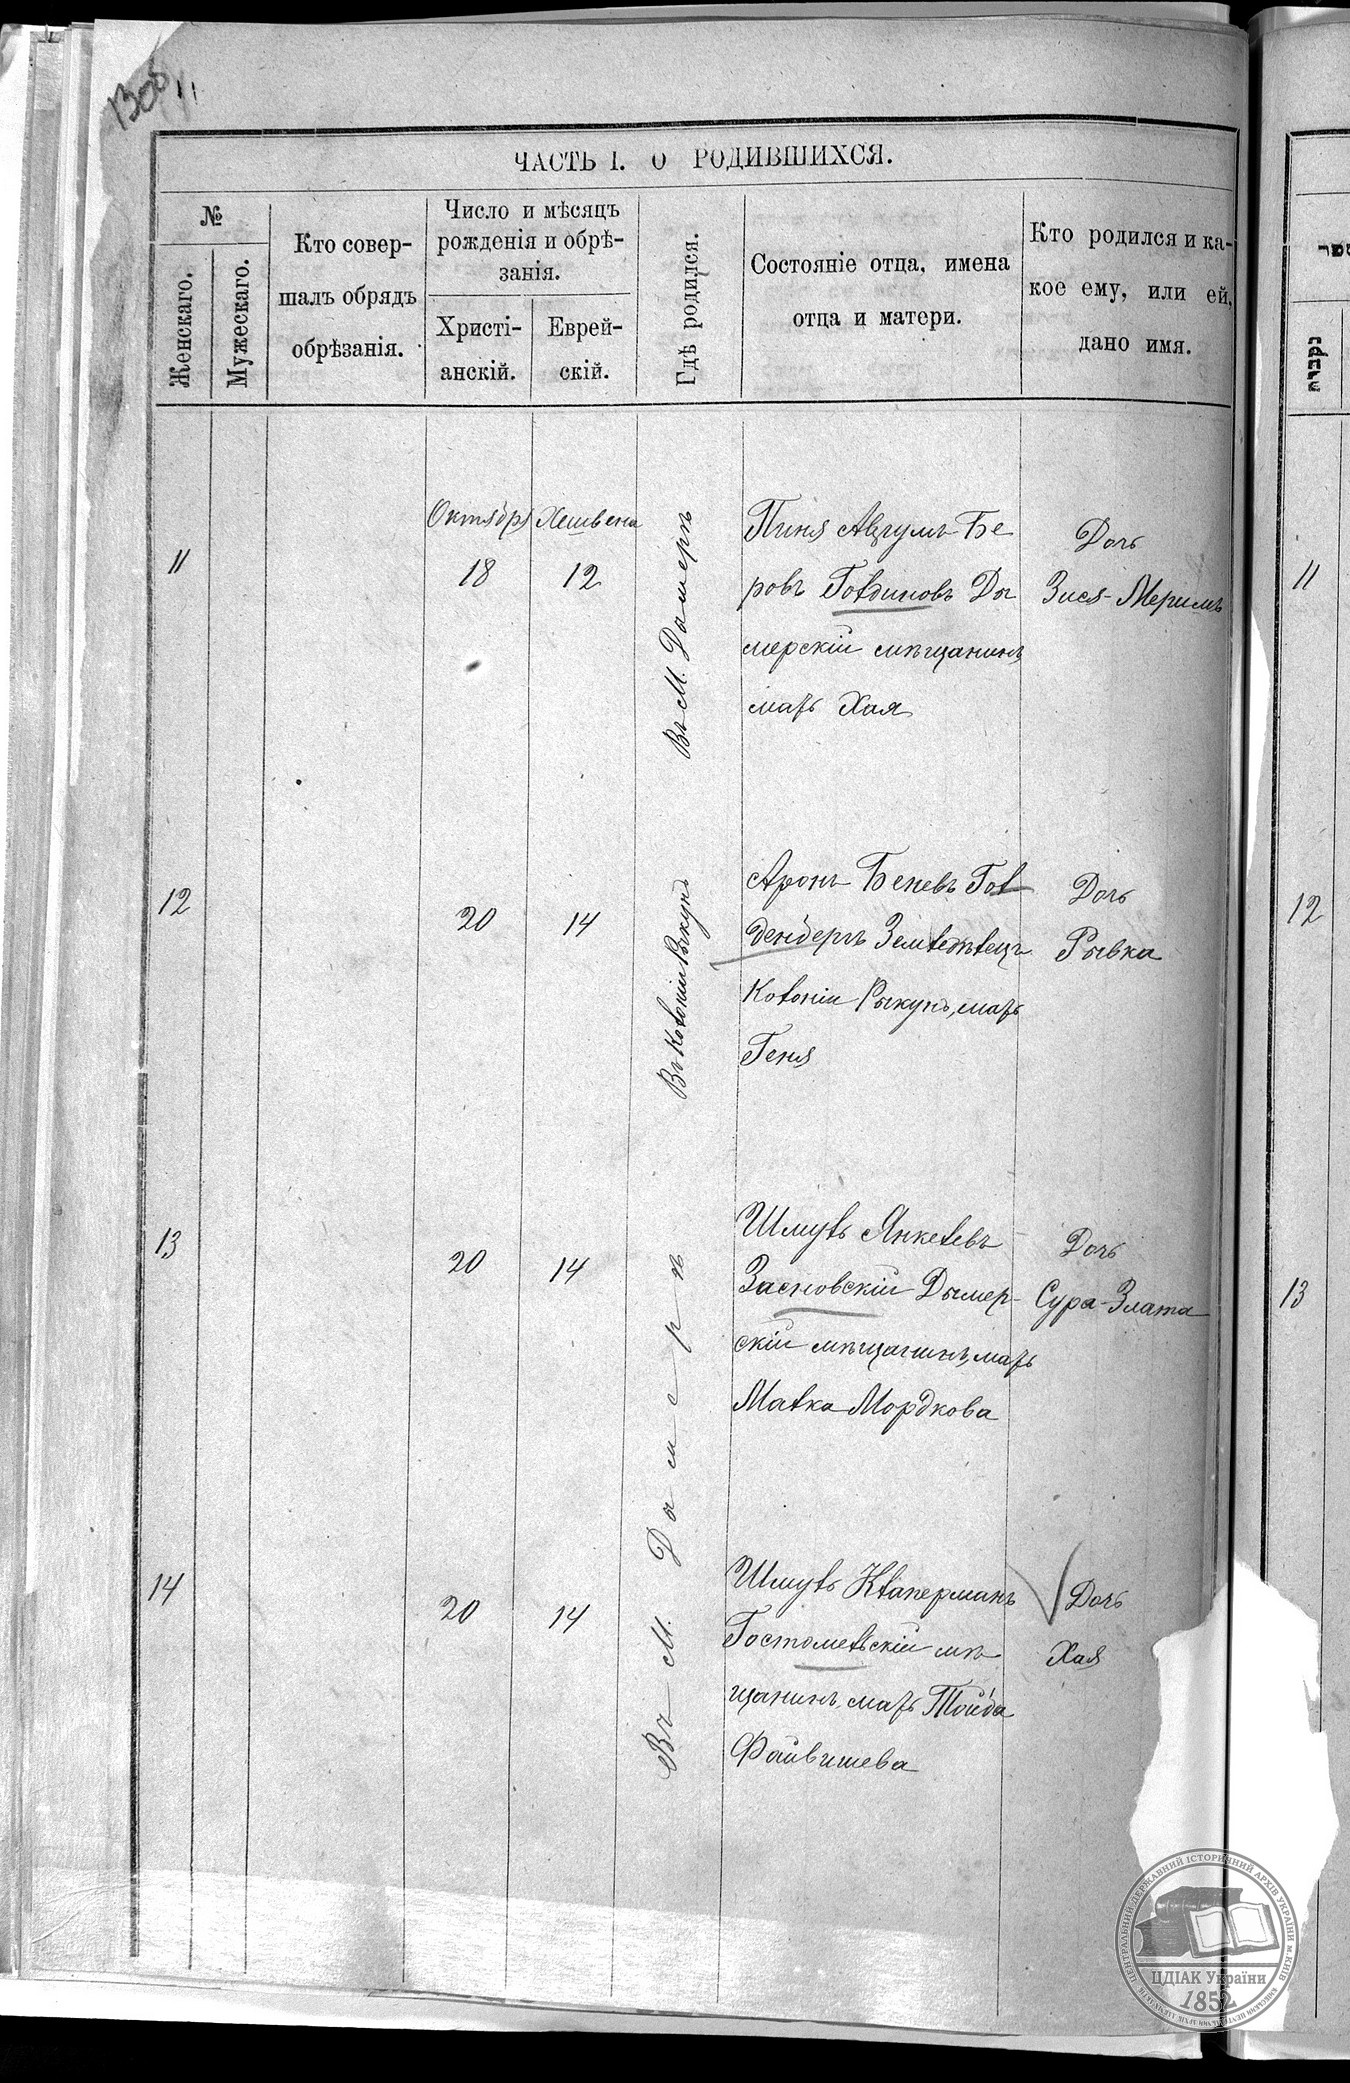 ЧАСТЬ I. О РОДИВШИХСЯ.
№
Женскаго.
Мужескаго.
Кто совер-
шалъ обрядъ
обрѣзанія.
Число и мѣсяцъ
рожденія и обрѣ-
занія.
Христі-
анскій.
Еврей-
скій.
Гдѣ родился.
Состояніе отца, имена
отца и матери.
Кто родился и ка-
кое ему, или ей,
дано имя.
נקבות
11
Октября
18
Хешвена
12
Въ М. Дымерѣ
Пиня Авгумъ Бе
ровъ Голдиновъ Ды
мерскій мѣщанинъ,
мать Хая
Дочь
Зися-Меримъ
11
12
20
14
Въ Колоніи Рыкунъ
Аронъ Беневъ Гол
денбергъ Земледѣлецъ
Колоніи Рыкунъ, мать
Геня
Дочь
Рывка
12
13
20
14
Въ М. Дымерѣ
Шмуль Янкелевъ
Засновскій Дымер-
скій мѣщанинъ, мать
Малка Мордкова
Дочь
Сура-Злата
13
14
20
14
Шмуль Клаперманъ
Гостомельскій мѣ
щанинъ, мать Тойба
Файвишева
Дочь
Хая
ЦЕНТРАЛЬНИЙ ДЕРЖАВНИЙ ІСТОРИЧНИЙ АРХІВ УКРАЇНИ м.КИЇВ
ЦДІАК України
1852